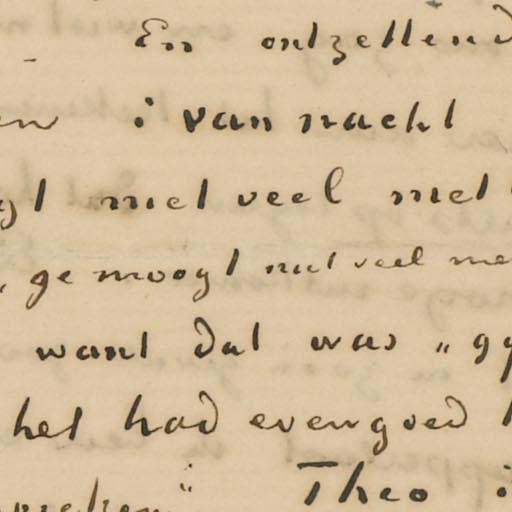 En ontzettend
van nacht
niet veel met
ge moogt niet veel me
want dat was „ gy
het had evengoed
Theo